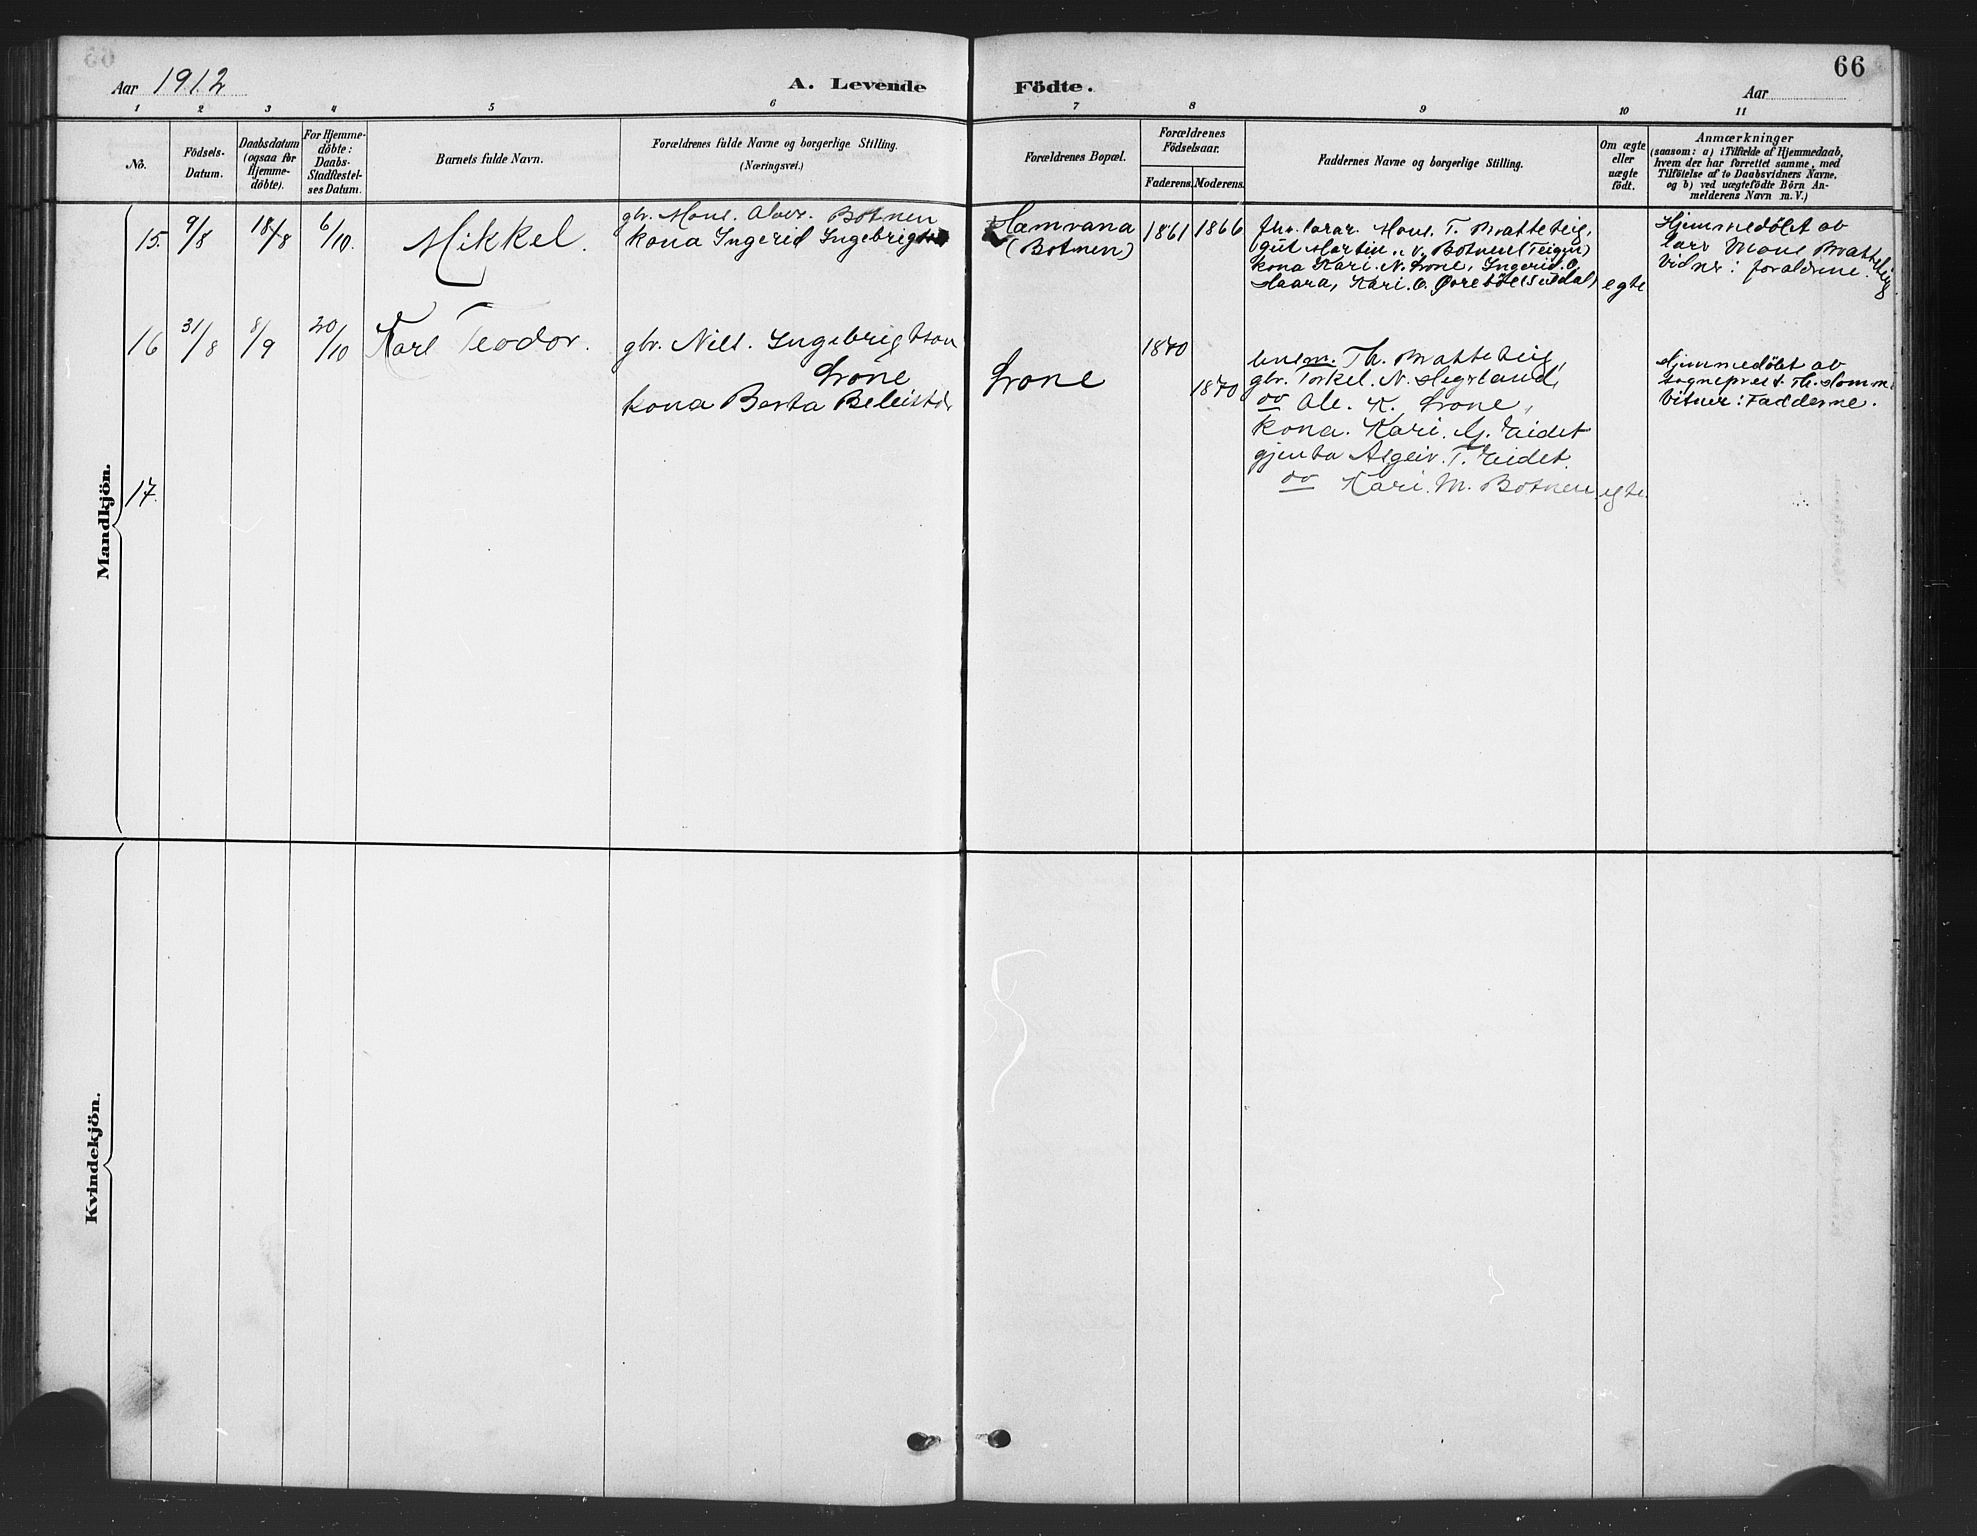 66
Aar 1912
A. Levende Födte.
Aar
1 2 3 4 5 6 7 8 9 10 11
Nö.
Födsels-
Datum.
Daabsdatum
(ogsaa for
Hjemme-
döbte).
For Hjemme-
döbte:
Daabs-
Stadfæstel-
ses Datum.
Barnets fulde Navn.
Forældrenes fulde Navne og borgerlige Stilling.
(Næringsvei.)
Forældrenes Bopæl.
Forældrenes
Födselsaar.
Faderens. Moderens.
Faddernes Navne og borgerlige Stilling.
Om ægte
eller
uægte
födt.
Anmærkninger
(saasom: a) i Tilfælde af Hjemmedaab,
hvem der har forrettet samme, med
Tilföielse af to Daabsvidners Navne,
og b) ved uægtefödte Börn An-
melderens Navn m. V.)
Mandkjön.
15. 9/8 18/8 6/10.
Mikkel.
gbr. Mons. Botnen
kona Ingerid
Hamrana
(Botnen)
1861 1866
Mons. T. Brattebeig,
gut Martin Botnen (Teigen)
kona Kari. N. Lrone, Ingerid. O.
Haara, Kari. O. Övrebö (Suldal)
egte
Hjemmedöbt av
lærer Mons Brattebeig
Vidner: foraldrene.
16 31/8 8/9 20/10
Karl Teodor.
gbr. Nils. Ingebrigtson
Lrone
kona Berta
Lrone
1870
1870
Th. Brattebeig,
gbr. Torkel. N. Hegrland,
do Ole. K. Lrone,
kona. Kari. G. Eidet
gjenta Asgeir. T. Eidet.
do Kari. M. Botnen.
egte
Hjemmedöbt av
sogneprest Th. Homme
Vitner: Fadderne.
17.
Kvindekjön.